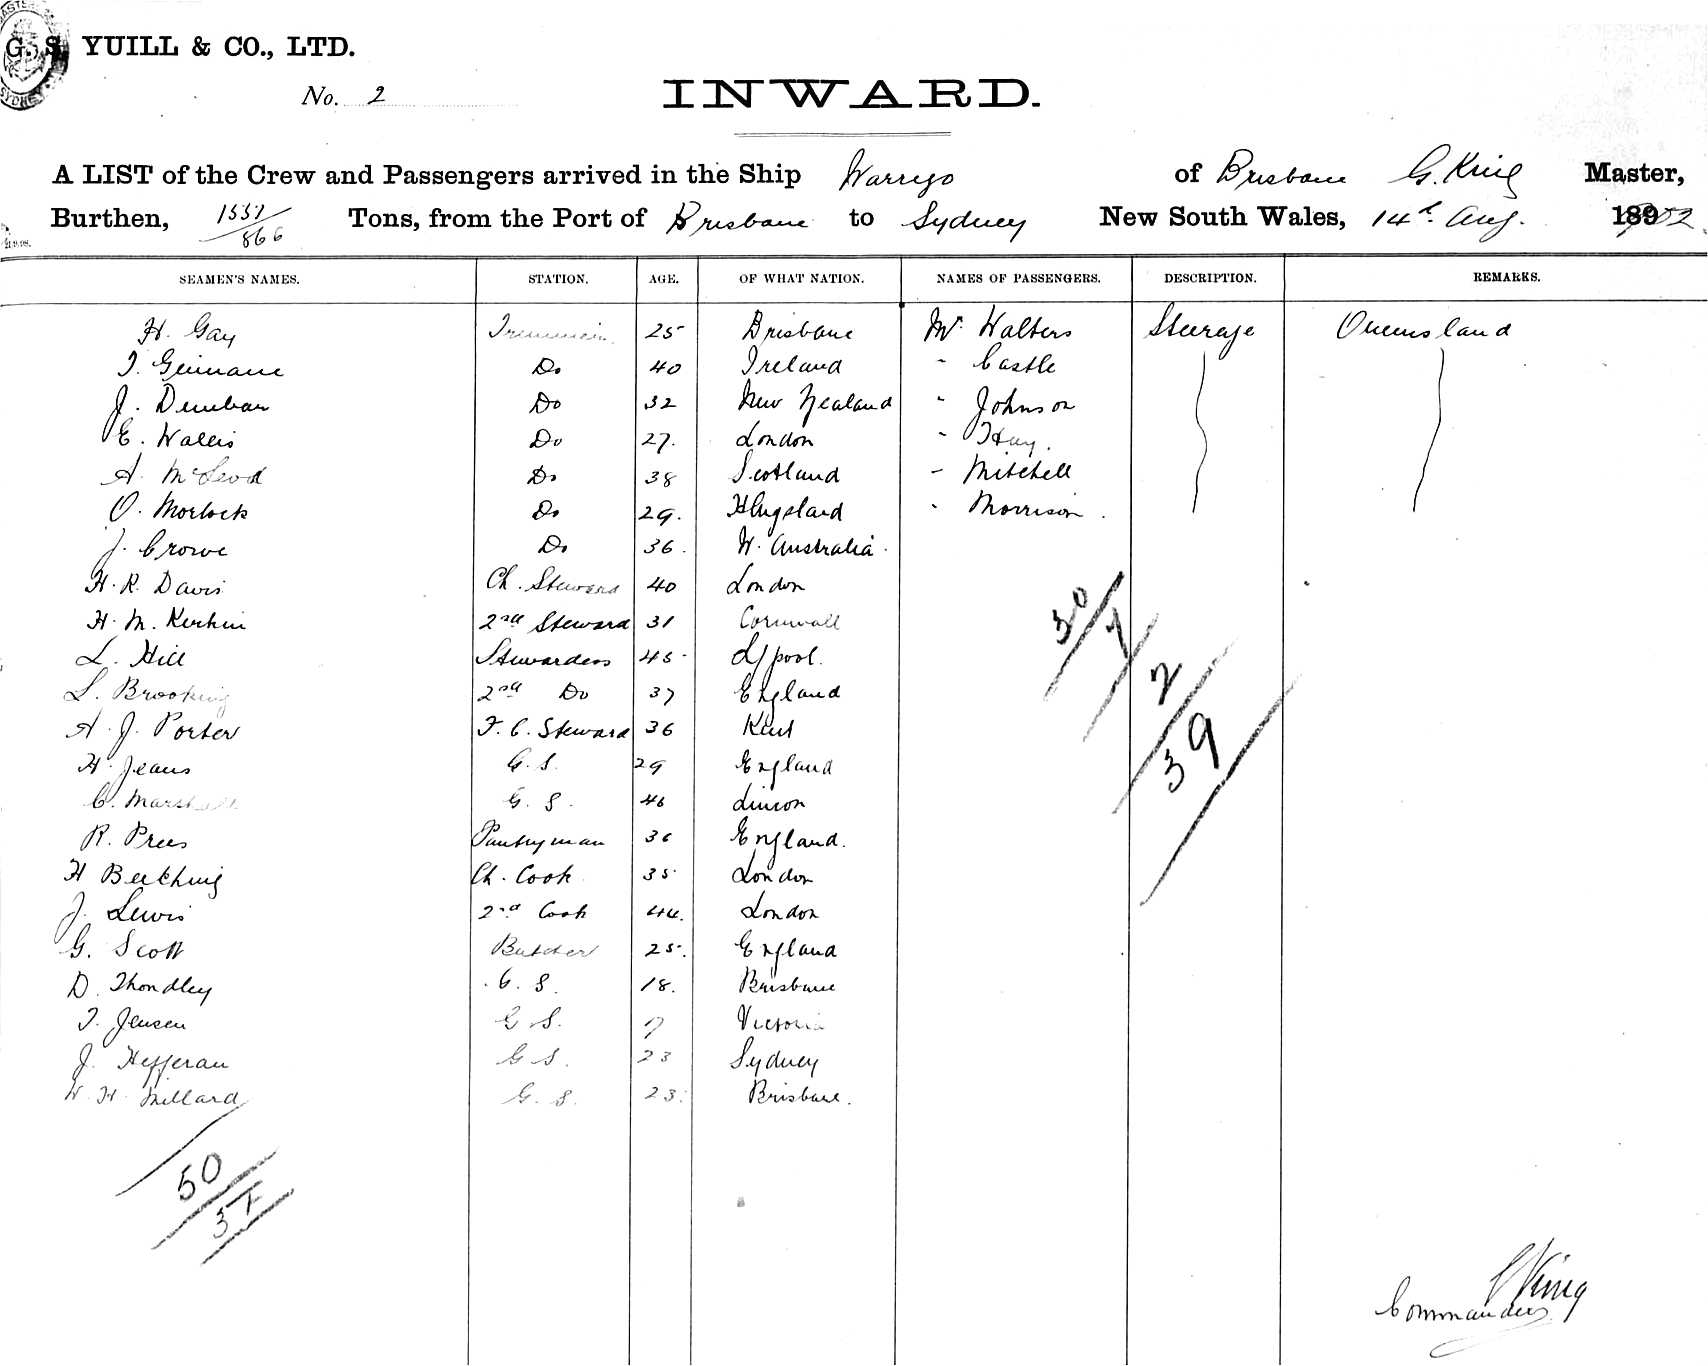 G. S. YUILL & CO., LTD.
No. 2
INWARD.
A LIST of the Crew and Passengers arrived in the Ship Warrego of Brisbane G. King Master,
Burthen, 1557/866 Tons, from the Port of Brisbane to Sydney New South Wales, 14th Aug. 1902
SEAMEN'S NAMES. STATION. AGE. OF WHAT NATION. NAMES OF PASSENGERS. DESCRIPTION. REMARKS.
H. Gay 25 Brisbane Mr Walters Steerage Queensland
T. Guinane Do 40 Ireland " Castle
J. Dunbar Do 32 New Zealand " Johnson
E. Wallis Do 27. London " Hay.
A. McLeod Do 38 Scotland " Mitchell
O. Morlock Do 29. " Morrison.
J. Crowe Do 36. W. Australia.
H. R. Davis Ch. Steward 40 London
H. M. 2nd Steward 31 Cornwall
L. Hill Stewardess 45 L/pool.
L. Brooking 2nd Do 37 England
A. J. Porter F. C. Steward 36 Kent
H. Jeans G. S. 29 England
C. Marshall G. S. 46
R. Prees Pantryman 36 England.
H Ch. Cook 35 London
J. Lewis 2nd Cook 44. London
G. Scott Butcher 25. England
D. Thondley G. S. 18. Brisbane
T. Jensen G S. Victoria
J. Hefferan G S. 23 Sydney
W. H. Millard G. S. 23. Brisbane.
30/7
2
39
50
37
G King
Commander